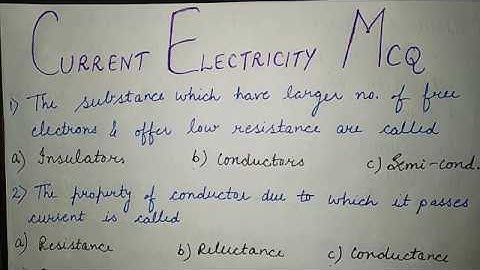 CURRENT ELECTRICITY MCQ
1) The substance which have larger no. of free
electrons & offer low resistance are called
a) Insulators b) Conductors c) Semi-cond.
2) The property of conductor due to which it passes
current is called
a) Resistance b) Reluctance c) Conductance